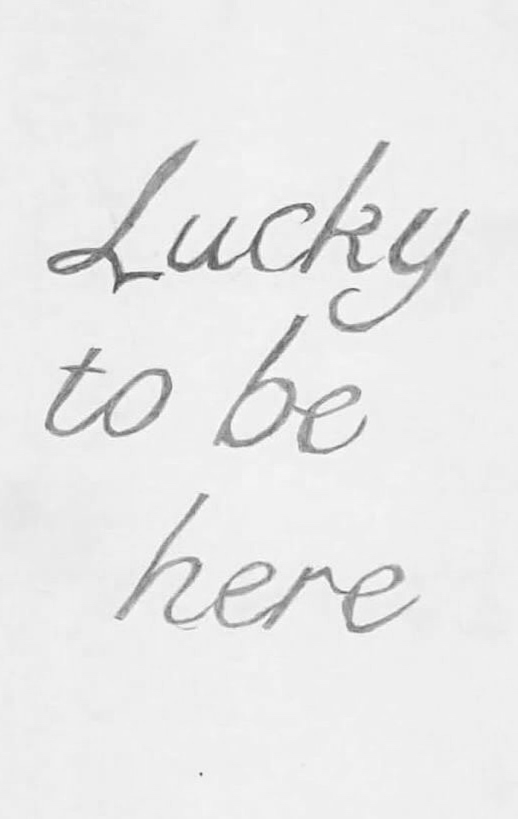 Lucky
to be
here